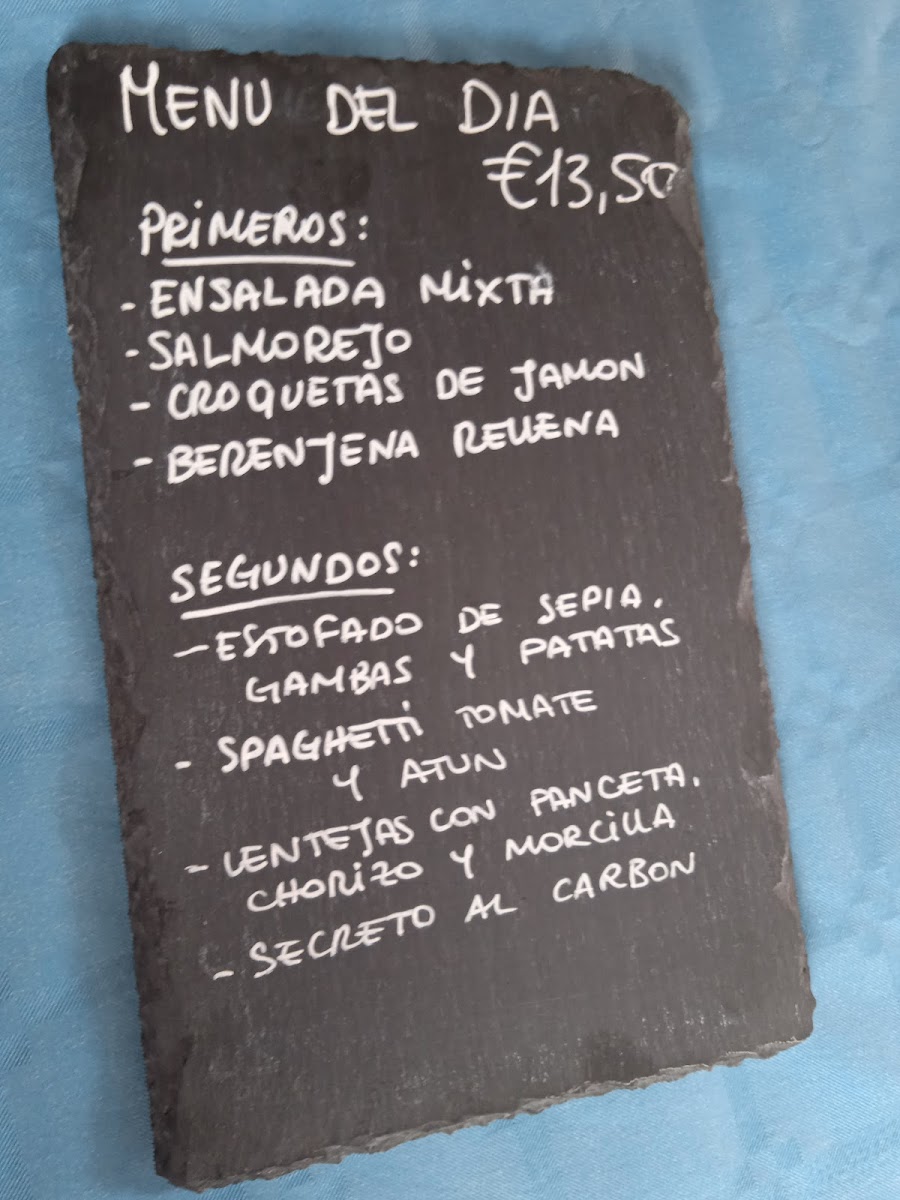 MENU DEL DIA
€13,50
PRIMEROS:
- ENSALADA MIXTA
- SALMOREJO
- CROQUETAS DE JAMON
- BERENJENA RELLENA
SEGUNDOS:
- ESTOFADO DE SEPIA.
GAMBAS Y PATATAS
- SPAGHETTI TOMATE
Y ATUN
- LENTEJAS CON PANCETA.
CHORIZO Y MORCILLA
- SECRETO AL CARBON